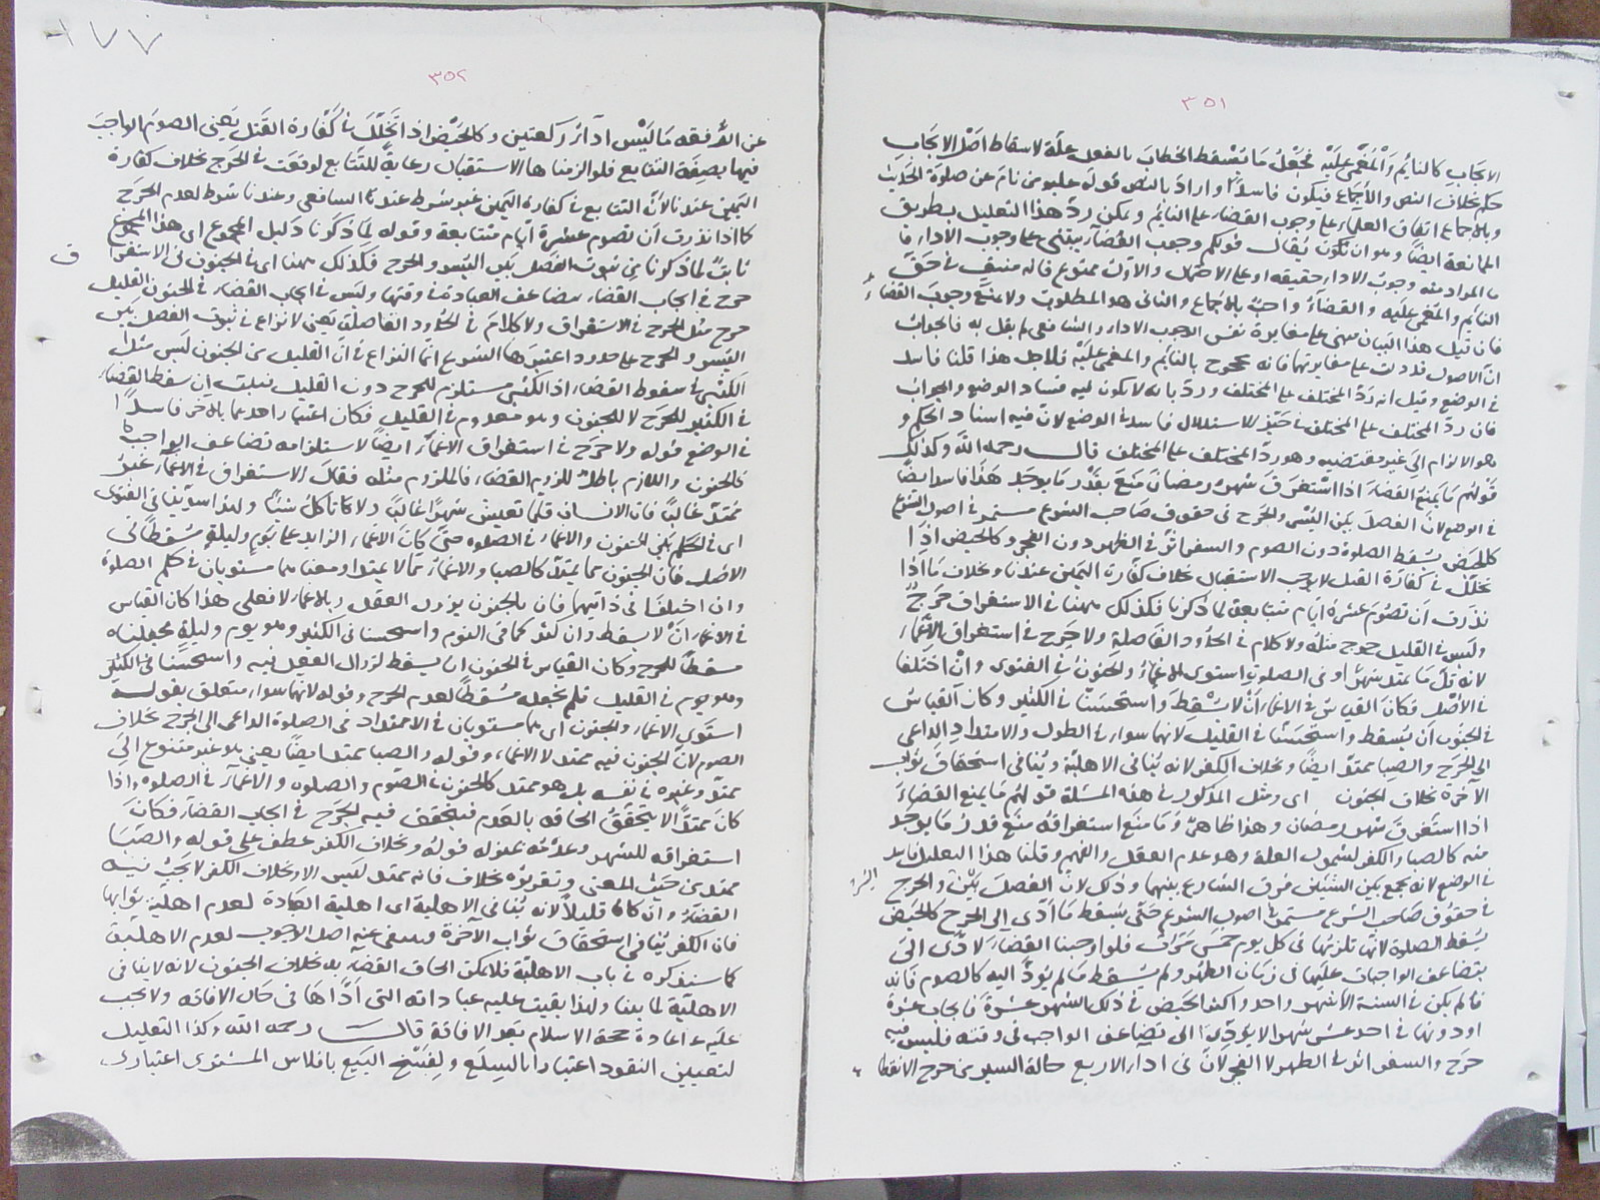 ٣٥١
الايجاب كالنايم والمغمى عليه فجعل ما يسقط الخطاب بالفعل علة لاسقاط اصل الايجاب
حكم بخلاف النص والاجماع فيكون فاسدا واراد بالنص قوله عليه من نام عن صلوة الحديث
وبالاجماع اتفاق العلماء على وجوب القضاء على النايم ويمكن رد هذا التعليل بطريق
الممانعة ايضا وهو ان يقال قولكم وجوب القضاء يبتنى على وجوب الاداء ما
ما المراد منه وجوب الاداء حقيقه او على الاحتمال والاول ممنوع فانه منتف في حق
النايم والمغمى عليه والقضاء واجب بالاجماع والثاني هو المطلوب ولا يمنع وجوب القضاء
فان قيل هذا البيان مبنى على مغايرة نفس الوجوب الاداء والشافعى لم يقل به فالجواب
ان الاصول قد دلت على مغايرتهما فانه محجوج بالنايم والمغمى عليه فلاجل هذا قلنا فاسد
في الوضع وقيل انه رد المختلف على المختلف ورد بانه لا يكون فيه فساد الوضع والجواب
فان رد المختلف على المختلف في حيز الاستدلال فاسد في الوضع لان فيه اسناد الحكم و
هو الالزام الى غير مقتضيه وهو رد المختلف على المختلف قال رحمه الله وكذلك
قولهم ما يمنع القضاء اذا استغرق شهر رمضان منع بقدر ما يوجد هذا فاسد ايضا
في الوضع لان الفصل بين اليسر والحرج في حقوق صاحب الشرع مستمر في اصول الشرع
كالحيض يسقط الصلوة دون الصوم والسفر اثر في الظهر دون الفجر وكالحيض اذا
تخلل في كفارة القتل لا يوجب الاستقبال بخلاف كفارة اليمين عندنا وبخلاف ما اذا
نذرت ان تصوم عشرة ايام متتابعة لما ذكرنا فكذلك ههنا في الاستغراق حرج
وليس في القليل حرج مثله ولا كلام في الحدود الفاصلة ولا حرج في استغراق الاغماء
لانه قل ما يمتد شهرا وفي الصلوة استوى الاغماء والجنون في الفتوى وان اختلفا
في الاصل فكان القياس في الاغماء ان لا يسقط واستحسنا في الكثير وكان القياس
في الجنون ان يسقط واستحسنا في القليل لانهما سواء في الطول والامتداد الداعى
الى الحرج والصبا ممتد ايضا وبخلاف الكفر لانه ينافى الاهلية وينافى استحقاق ثواب
الآخرة بخلاف الجنون اى ومثل المذكور في هذه المسئلة قولهم ما يمنع القضاء
اذا استغرق شهر رمضان وهذا ظاهر وما منع استغراقه منع قدر ما يوجد
منه كالصبا والكفر لشمول العلة وهو عدم العقل والفهم وقلنا هذا التعليل فاسد
في الوضع لانه يجمع بين الشيئين فرق الشارع بينهما وذلك لان الفصل بين والحرج
اليسر
في حقوق صاحب الشرع مستمر في اصول الشرع حتى يسقط ما ادى الى الحرج كالحيض
يسقط الصلوة لانها تلزمها في كل يوم خمس مرات فلو اوجبنا القضاء لادى الى
تضاعف الواجبات عليها في زمان الطهر ولم يسقط ما لم يؤد اليه كالصوم فانه
لم يكن في السنة الا شهر واحد واكثر الحيض في ذلك الشهر عشرة فايجاب عشرة
او دونها في احد عشر شهرا لا يؤدى الى تضاعف الواجب في وقته فليس فيه
حرج والسفر اثر في الظهر لا الفجر لان في اداء الاربع حالة السير من حرج الانقطاع
١٧٧
٣٥٢
عن الرفقه ما ليس اداء ركعتين وكالحيض اذا تخلل في كفارة القتل يعنى الصوم الواجب
فيها بصفة التتابع فلو الزمناها الاستقبال رعاية للتتابع لوقعت في الحرج بخلاف كفارة
اليمين عندنا لان التتابع في كفارة اليمين غير شرط عند الشافعى وعندنا شرط لعدم الحرج
كما اذا نذرت ان تصوم عشرة ايام متتابعة وقوله لما ذكرنا دليل المجموع اى هذا المجموع
ثابت لما ذكرنا من ثبوت الفصل بين اليسر والحرج فكذلك ههنا اى في الجنون في الاستغراق
حرج في ايجاب القضاء بتضاعف العبادة في وقتها وليس في ايجاب القضاء في الجنون القليل
ق
حرج مثل الحرج في الاستغراق ولا كلام في الحدود الفاصلة يعنى لا نزاع في ثبوت الفصل بين
اليسر والحرج على حدود اعتبرها الشرع انما النزاع في ان القليل من الجنون ليس مثل
الكثير في سقوط القضاء اذ الكثير مستلزم للحرج دون القليل قبلت ان سقط القضاء
في الكثير للحرج لا للجنون وهو معدوم في القليل فكان اعتبار احدهما بالآخر فاسدا
في الوضع قوله ولا حرج في استغراق الاغماء ايضا لاستلزامه تضاعف الواجب كما
في الجنون واللازم باطل للزوم القضاء فالملزوم مثله فقال الاستغراق في الاغماء غير
ممتد غالبا فان الانسان قلما يعيش شهرا غالبا ولا كاكل شيئا ولهذا استويا في الفتوى
اى في الحكم بين الجنون والاغماء في الصلوة حتى كان الاغماء الزايد على يوم وليلة مسقطا في
الاصل فان الجنون مما يمتد كالصبا والاغماء مما لا يمتد او معناه هما مستويان في حكم الصلوة
وان اختلفا في ذاتيهما فان بالجنون يزول العقل وبالاغماء لا فعلى هذا كان القياس
في الاغماء ان لا يسقط وان كثر كما في النوم واستحسنا في الكثير وهو يوم وليلة فجعلناه
مسقطا للحرج وكان القياس في الجنون ان يسقط لزوال العقل فيه واستحسنا في الكثير
وهو يوم في القليل فلم نجعله مسقطا لعدم الحرج وقوله لانهما سواء متعلق بقوله
استوى الاغماء والجنون اى هما مستويان في الامتداد في الصلوة الداعى الى الحرج بخلاف
الصوم لان الجنون فيه ممتد لا الاغماء وقوله والصبا ممتد ايضا يعنى هو غير متنوع الى
ممتد وغيره في نفسه بل هو ممتد كالجنون في الصوم والصلوة والاغماء في الصلوة واذا
كان ممتدا لا يتحقق الحاقه بالعدم فيتحقق فيه الحرج في ايجاب القضاء فكان
استغراقه للشهر وعدمه بمنزله قوله وبخلاف الكفر عطف على قوله والصبا
ممتد من حيث المعنى وتقريره بخلاف فانه ممتد ليس الا وبخلاف الكفر لا يجب فيه
القضاء وان كان قليلا لانه ينافى الاهلية اى اهلية العبادة لعدم اهلية ثوابها
فان الكفر ينافى استحقاق ثواب الآخرة وينتفى عنه اصل الوجوب لعدم الاهلية
كما سنذكره في باب الاهلية فلا يمكن الحاق القضاء به بخلاف الجنون لانه لا ينافى
الاهلية لما بينا ولهذا بقيت عليه عباداته التى اداها في حال الافاقه ولا يجب
عليه اعادة حجة الاسلام بعد الافاقة قال رحمه الله وكذا التعليل
لتعيين النقود اعتبارا بالسلع ولفسخ البيع بافلاس المشترى اعتبارا